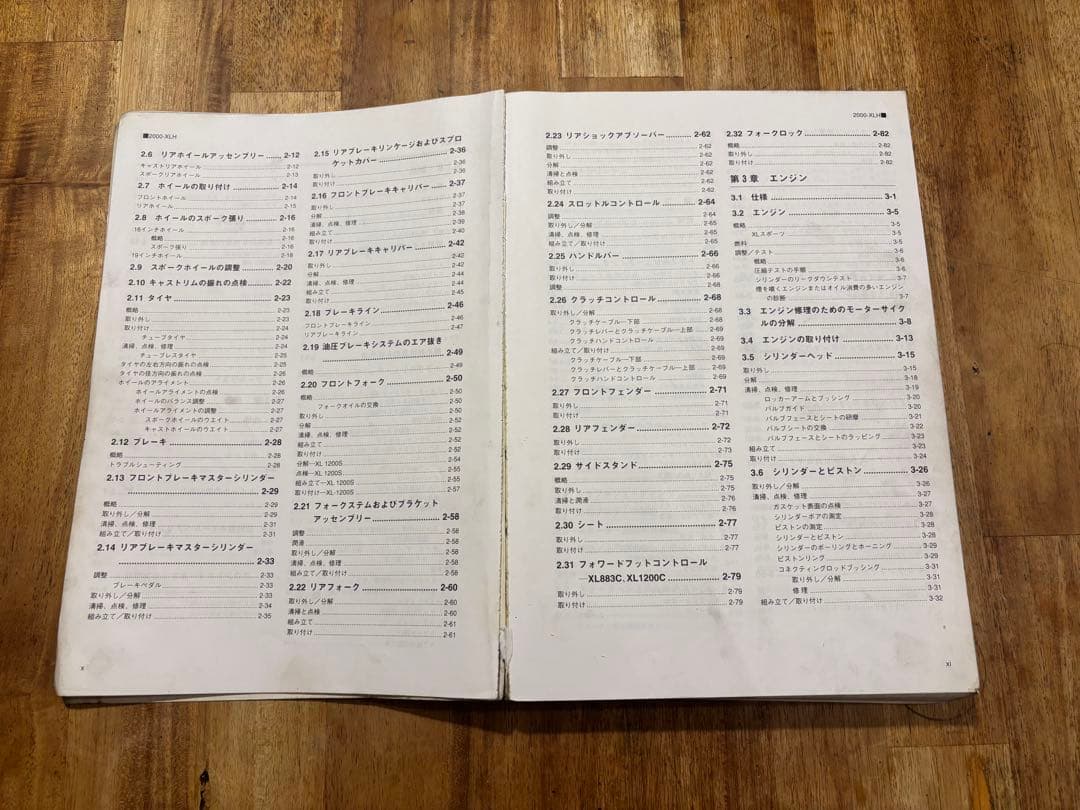 ■2000-XLH
2.6 リアホイールアッセンブリー 2-12
キャストリアホイール 2-12
スポークリアホイール 2-13
2.7 ホイールの取り付け 2-14
フロントホイール 2-14
リアホイール 2-15
2.8 ホイールのスポーク張り 2-16
16インチホイール 2-16
概略 2-16
スポーク張り 2-16
19インチホイール 2-18
2.9 スポークホイールの調整 2-20
2.10 キャストリムの振れの点検 2-22
2.11 タイヤ 2-23
概略 2-23
取り外し 2-23
取り付け 2-24
チューブタイヤ 2-24
清掃、点検、修理 2-24
チューブレスタイヤ 2-25
タイヤの左右方向の振れの点検 2-26
タイヤの径方向の振れの点検 2-26
ホイールのアライメント 2-26
ホイールアライメントの点検 2-26
ホイールのバランス調整 2-27
ホイールアライメントの調整 2-27
スポークホイールのウエイト 2-27
キャストホイールのウエイト 2-27
2.12 ブレーキ 2-28
概略 2-28
トラブルシューティング 2-28
2.13 フロントブレーキマスターシリンダー
2-29
概略 2-29
取り外し／分解 2-29
清掃、点検、修理 2-31
組み立て／取り付け 2-31
2.14 リアブレーキマスターシリンダー
2-33
調整 2-33
ブレーキペダル 2-33
取り外し／分解 2-33
清掃、点検、修理 2-34
組み立て／取り付け 2-35
x
2.15 リアブレーキリンケージおよびスプロ
ケットカバー 2-36
取り外し 2-36
取り付け 2-36
2.16 フロントブレーキキャリパー 2-37
取り外し 2-37
分解 2-38
清掃、点検、修理 2-39
組み立て 2-40
取り付け
2.17 リアブレーキキャリパー 2-42
取り外し 2-42
分解 2-44
清掃、点検、修理 2-44
組み立て 2-45
取り付け
2.18 ブレーキライン 2-46
フロントブレーキライン 2-46
リアブレーキライン 2-47
2.19 油圧ブレーキシステムのエア抜き
2-49
概略 2-49
2.20 フロントフォーク 2-50
概略 2-50
フォークオイルの交換 2-50
取り外し 2-50
分解
清掃、点検、修理 2-52
組み立て 2-52
取り付け 2-52
分解―XL 1200S 2-54
点検―XL 1200S 2-55
組み立て―XL 1200S 2-55
取り付け―XL-1200S 2-57
2.21 フォークステムおよびブラケット
アッセンブリー 2-58
調整 2-58
潤滑 2-58
取り外し／分解 2-58
清掃、点検、修理 2-58
組み立て／取り付け 2-58
2.22 リアフォーク 2-60
取り外し／分解 2-60
清掃と点検 2-60
組み立て 2-61
取り付け 2-61
2000-XLH■
2.23 リアショックアブソーバー 2-62
調整 2-62
取り外し 2-62
分解 2-62
清掃と点検 2-62
組み立て 2-62
取り付け 2-62
2.24 スロットルコントロール 2-64
調整 2-64
取り外し／分解 2-65
清掃、点検、修理 2-65
組み立て／取り付け 2-65
2.25 ハンドルバー 2-66
取り外し 2-66
取り付け 2-66
調整 2-66
2.26 クラッチコントロール 2-68
取り外し／分解 2-68
クラッチケーブル―下部 2-68
クラッチレバーとクラッチケーブル―上部 2-68
クラッチハンドコントロール 2-69
組み立て／取り付け 2-69
クラッチケーブル―下部 2-69
クラッチレバーとクラッチケーブル―上部 2-69
クラッチハンドコントロール 2-69
2.27 フロントフェンダー 2-71
取り外し 2-71
取り付け 2-71
2.28 リアフェンダー 2-72
取り外し 2-72
取り付け 2-73
2.29 サイドスタンド 2-75
概略 2-75
取り外し 2-75
清掃と潤滑 2-76
取り付け 2-76
2.30 シート 2-77
取り外し 2-77
取り付け 2-77
2.31 フォワードフットコントロール
―XL883C、XL1200C 2-79
取り外し 2-79
取り付け 2-79
2.32 フォークロック 2-82
概略 2-82
取り外し 2-82
取り付け 2-82
第3章 エンジン
3.1 仕様 3-1
3.2 エンジン 3-5
概略 3-5
XLスポーツ 3-5
燃料 3-5
調整／テスト 3-6
概略 3-6
圧縮テストの手順 3-6
シリンダーのリークダウンテスト 3-7
煙を噴くエンジンまたはオイル消費の多いエンジン
の診断 3-7
3.3 エンジン修理のためのモーターサイク
ルの分解 3-8
3.4 エンジンの取り付け 3-13
3.5 シリンダーヘッド 3-15
取り外し 3-15
分解 3-18
清掃、点検、修理 3-19
ロッカーアームとブッシング 3-20
バルブガイド 3-20
バルブフェースとシートの研磨 3-21
バルブシートの交換 3-22
バルブフェースとシートのラッピング 3-23
組み立て 3-23
取り付け 3-24
3.6 シリンダーとピストン 3-26
取り外し／分解 3-26
清掃、点検、修理 3-27
ガスケット表面の点検 3-27
シリンダーボアの測定 3-28
ピストンの測定 3-28
シリンダーとピストン 3-28
シリンダーのボーリングとホーニング 3-29
ピストンリング 3-29
コネクティングロッドブッシング 3-31
取り外し／分解 3-31
修理 3-31
組み立て／取り付け 3-32
xi